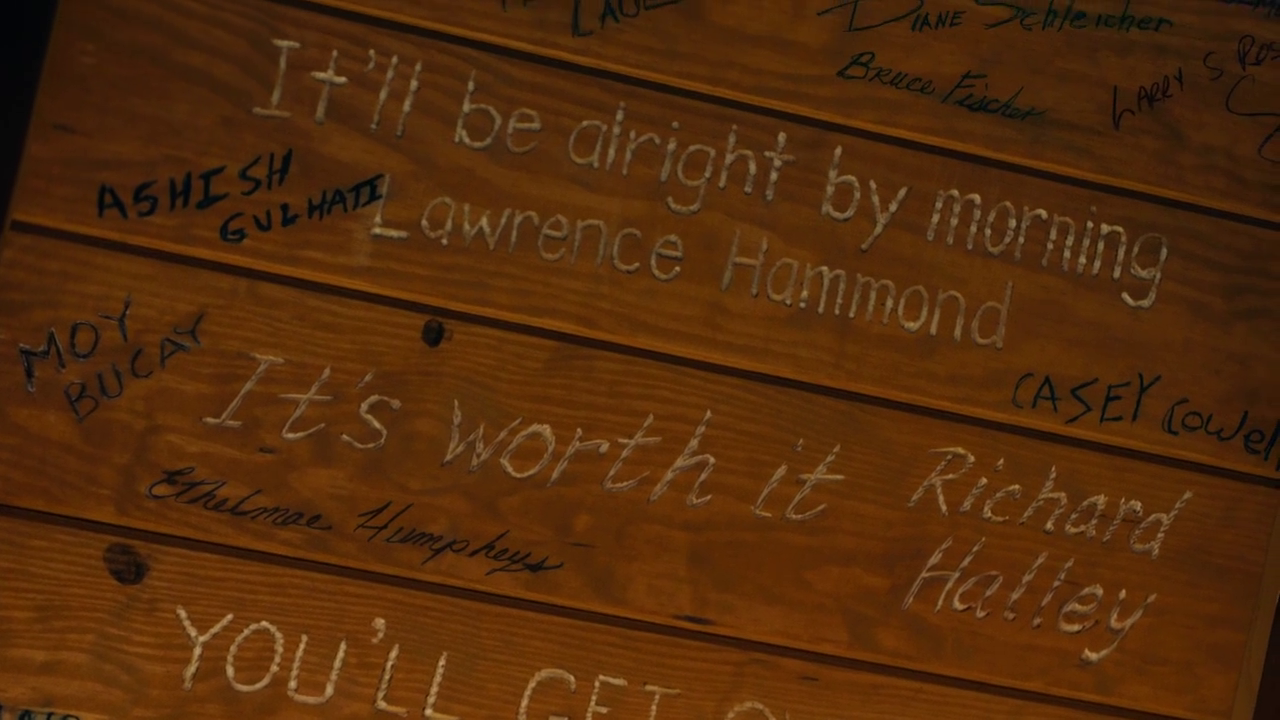 DIANE Schleicher
Bruce Fischer
LARRY S
It'll be alright by morning
ASHISH
GULHATI
Lawrence Hammond
MOY
BUCAY
CASEY
It's worth it Richard
Halley
Ethelmae Humpheys
YOU'LL GET